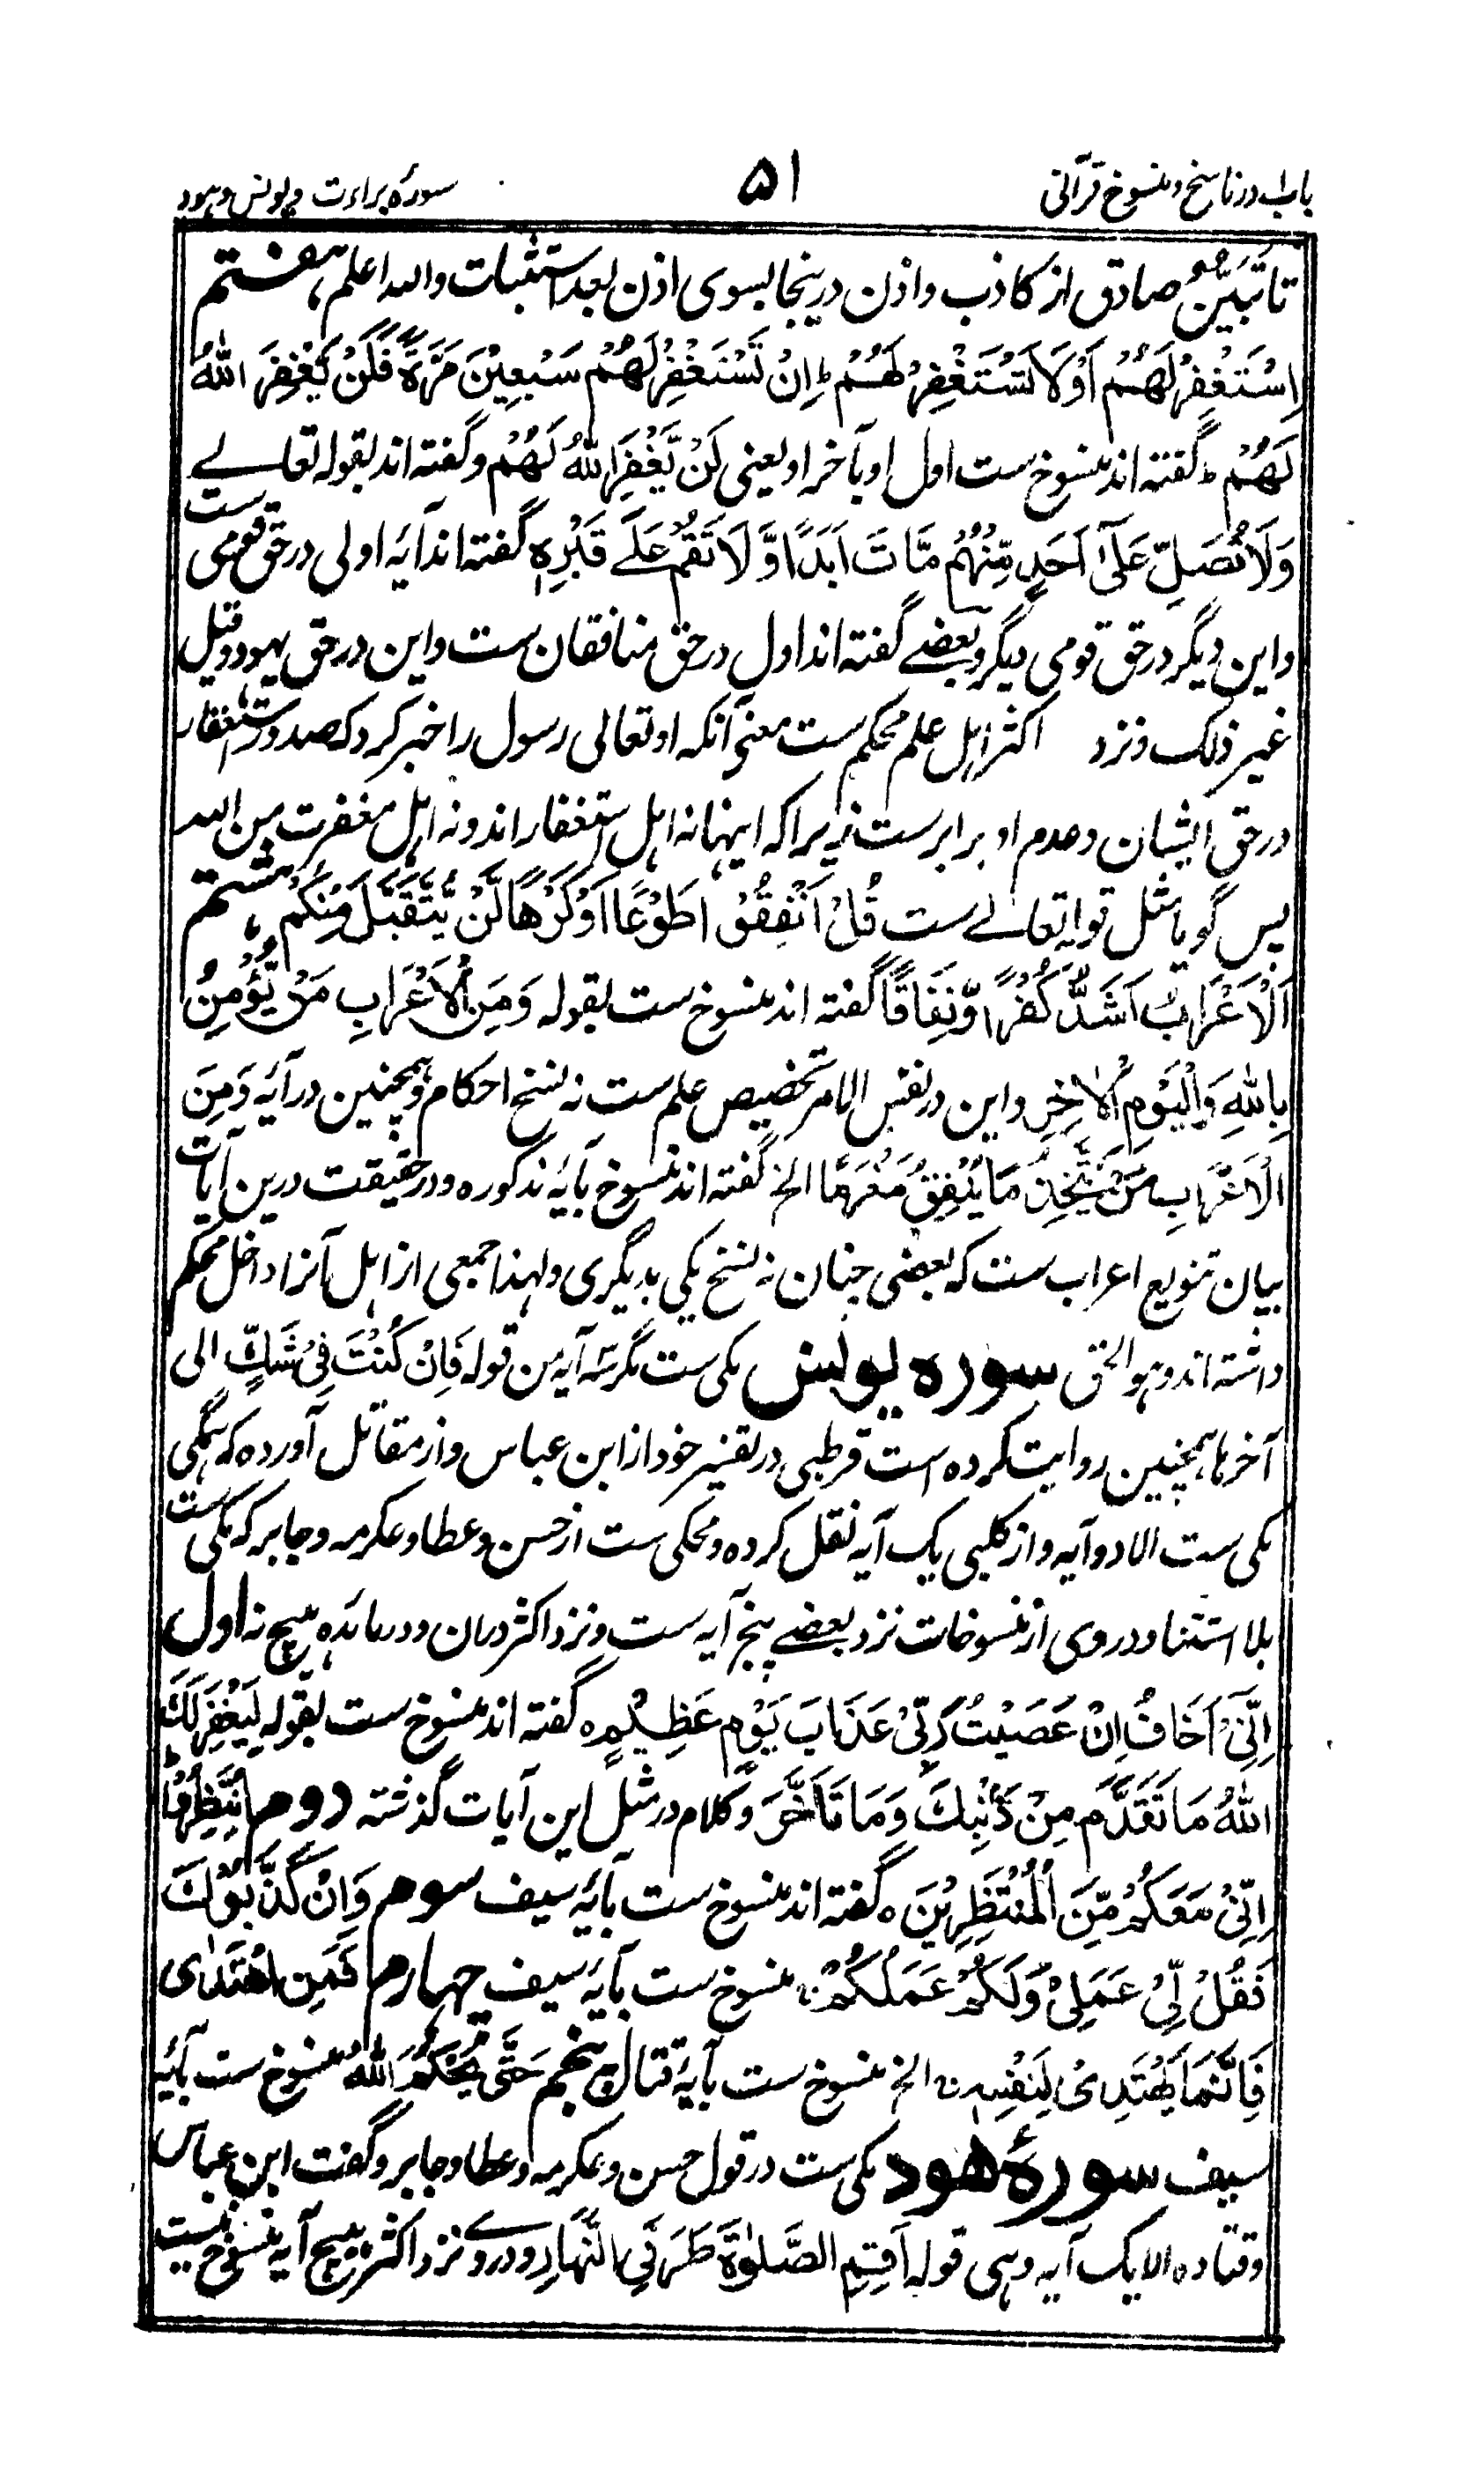 باب اول در ناسخ و منسوخ قرآنی
۵۱
سورهٔ براءت و یونس و هود
تا تَبَیُّن صادق از کاذب و اذن درینجا بسوی اذن بعد استثبات والله اعلم، هفتم
اِسْتَغْفِرْ لَهُمْ اَوْ لَا تَسْتَغْفِرْ لَهُمْ ط اِنْ تَسْتَغْفِرْ لَهُمْ سَبْعِيْنَ مَرَّةً فَلَنْ يَّغْفِرَ اللّٰهُ
لَهُمْ ط گفته اند منسوخ ست اول او بآخر او یعنی لَنْ يَّغْفِرَ اللّٰهُ لَهُمْ و گفته اند بقوله تعالے
وَلَا تُصَلِّ عَلٰٓى اَحَدٍ مِّنْهُمْ مَّاتَ اَبَدًا وَّلَا تَقُمْ عَلٰے قَبْرِهٖ گفته اند آیه اولی در حق قومی ست
و این دیگر در حق قومی دیگر و بعضے گفته اند اول در حق منافقان ست و این در حق یهود و قیل
غیر ذلک و نزد اکثر اهل علم محکم ست معنی آنکه او تعالی رسول را خبر کرد که صدور استغفار
در حق ایشان و عدم او برابر ست زیرا که اینها نه اهل استغفار اند و نه اهل مغفرت من الله
پس گویا مثل قوله تعالے ست قُلْ اَنْفِقُوْا طَوْعًا اَوْ كَرْهًا لَّنْ يُّتَقَبَّلَ مِنْكُمْ، هشتم
اَلْاَعْرَابُ اَشَدُّ كُفْرًا وَّنِفَاقًا گفته اند منسوخ ست بقوله وَمِنَ الْاَعْرَابِ مَنْ يُّؤْمِنُ
بِاللّٰهِ وَالْيَوْمِ الْاٰخِرِ و این در نفس الامر تخصیص علم ست نه نسخ احکام و همچنین در آیه وَمِنَ
الْاَعْرَابِ مَنْ يَّتَّخِذُ مَا يُنْفِقُ مَغْرَمًا الخ گفته اند منسوخ بآیهٔ مذکوره و در حقیقت درین آیات
بیان تنویع اعراب ست که بعضی چنان نه نسخ یکی بدیگری و لهذا جمعی از اهل آنرا داخل محکم
داشته اند و هو الحق سوره یونس مکی ست مگر سه آیه من قوله فَاِنْ كُنْتَ فِيْ شَكٍّ الی
آخرها همچنین روایت کرده است قرطبی در تفسیر خود از ابن عباس و از مقاتل آورده که همگی
مکی ست الا دو آیه و از کلبی یک آیه نقل کرده و محکی ست از حسن و عطا و عکرمه و جابر که مکی ست
بلا استثنا و در وی از منسوخات نزد بعضے پنج آیه ست و نزد اکثر دران و در مائده هیچ نه اول
اِنِّيْٓ اَخَافُ اِنْ عَصَيْتُ رَبِّيْ عَذَابَ يَوْمٍ عَظِيْمٍ ه گفته اند منسوخ ست بقوله لِيَغْفِرَ لَكَ
اللّٰهُ مَا تَقَدَّمَ مِنْ ذَنْبِكَ وَمَا تَاَخَّرَ و کلام در مثل این آیات گذشته دوم فَانْتَظِرُوْا ط
اِنِّيْ مَعَكُمْ مِّنَ الْمُنْتَظِرِيْنَ ه گفته اند منسوخ ست بآیهٔ سیف سوم وَاِنْ كَذَّبُوْكَ
فَقُلْ لِّيْ عَمَلِيْ وَلَكُمْ عَمَلُكُمْ منسوخ ست بآیهٔ سیف چهارم فَمَنِ اهْتَدٰى
فَاِنَّمَا يَهْتَدِيْ لِنَفْسِهٖ الخ منسوخ ست بآیهٔ قتال پنجم حَتّٰى يَحْكُمَ اللّٰهُ منسوخ ست بآیهٔ
سیف سورهٔ هود مکی ست در قول حسن و عکرمه و عطا و جابر و گفت ابن عباس
و قتاده الا یک آیه و هی قوله اَقِمِ الصَّلٰوةَ طَرَفَيِ النَّهَارِ و در وے نزد اکثر هیچ آیه منسوخ نیست